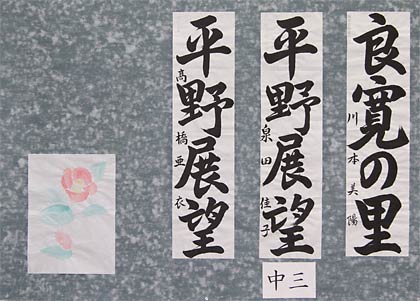 良寛の里
川本美陽
平野展望
泉田佳子
平野展望
高橋亜衣
中三